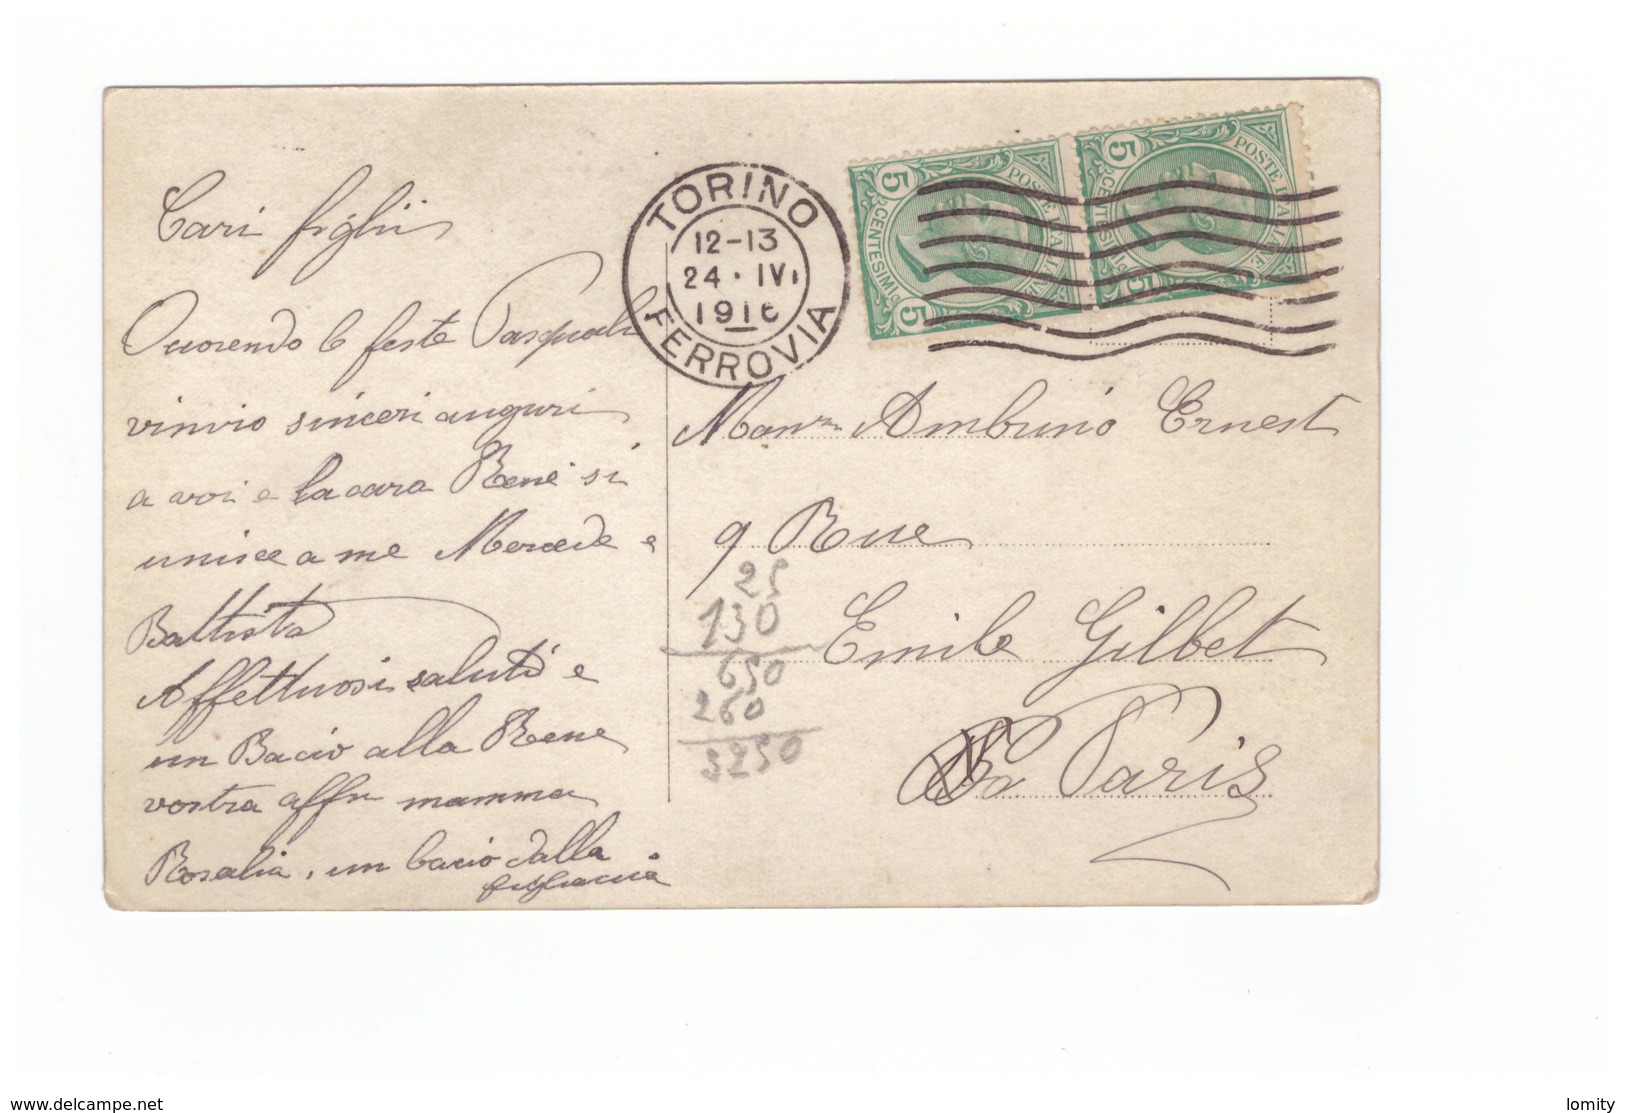 Cari figlii
Ocorendo le feste Pasquali
vinvio sinceri auguri
a voi e la cara Rene si
unisce a me Mercede e
Battista
Affettuosi saluti e
un Bacio alla Rene
vostra affma mamma
Rosalia, un bacio dalla
figliaccia
TORINO
12-13
24·IV
1916
FERROVIA
5 POSTE ITALIANE
CENTESIMI 5
5 POSTE ITALIANE
CENTESIMI 5
Ambrino Ernest
9 Rue
Emile Gilbet
Paris
25
130
650
260
3250
www.delcampe.net
lomity